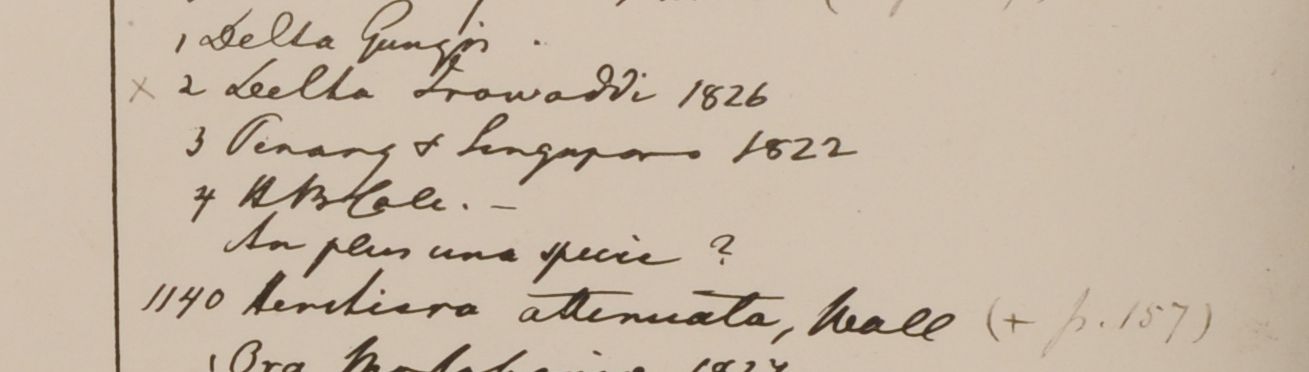 1 Delta Gangis.
x 2 Delta Irawaddi 1826
3 Penang & Singapore 1822
4 H B Calc. —
An plus una specie ?
1140 attenuata, Wall (+ p. 157)
1 Ora 1824